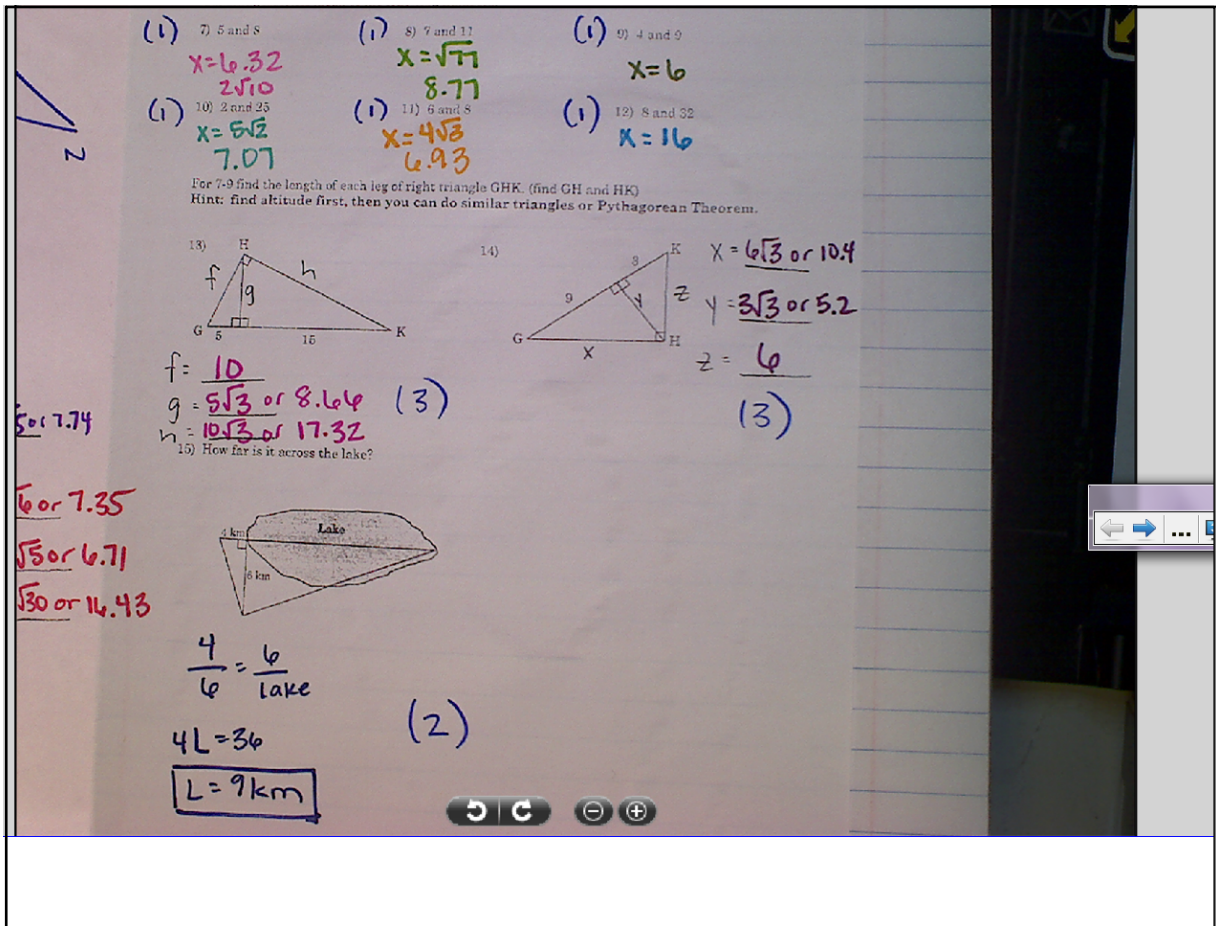 (1) 7) 5 and 8 (1) 8) 7 and 11 (1) 9) 4 and 9
x=6.32 x=√77 x=6
2√10 8.77
(1) 10) 2 and 25 (1) 11) 6 and 8 (1) 12) 8 and 32
x=5√2 x=4√3 x=16
7.07 6.93
For 7-9 find the length of each leg of right triangle GHK. (find GH and HK)
Hint: find altitude first, then you can do similar triangles or Pythagorean Theorem.
13) H
f g h
G 5 15 K
f= 10
g = 5√3 or 8.66 (3)
h = 10√3 or 17.32
14) K
9 3 y z
G x H
x = 6√3 or 10.4
y = 3√3 or 5.2
z = 6
(3)
15) How far is it across the lake?
4 km Lake
6 km
4/6 = 6/lake
4L=36 (2)
L=9km
z
5 or 7.74
6 or 7.35
√5 or 6.71
√30 or 16.43
...